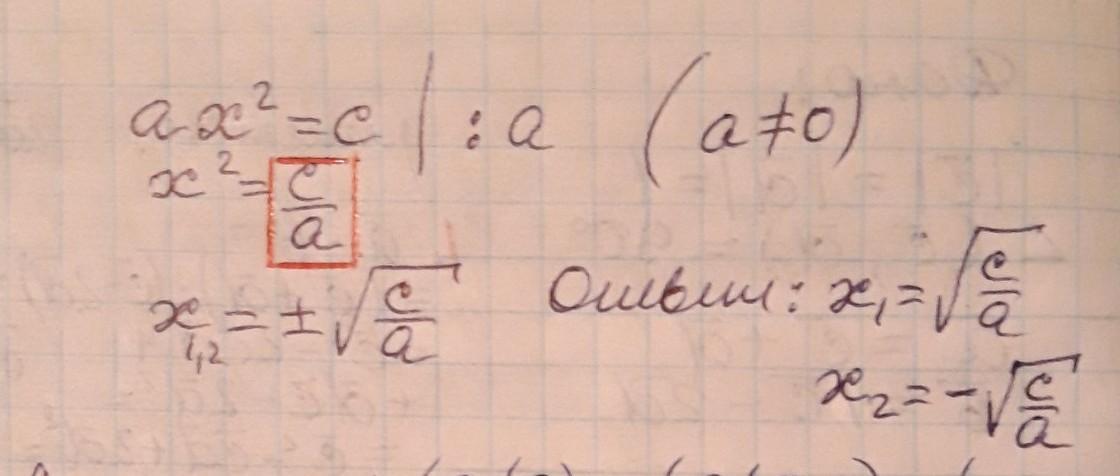 ax² = c | : a (a ≠ 0)
x² = c/a
x₁,₂ = ±√(c/a)
Ответ: x₁ = √(c/a)
x₂ = -√(c/a)